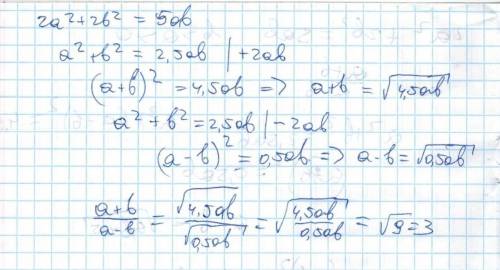 2a² + 2b² = 5ab
a² + b² = 2,5ab | +2ab
(a+b)² = 4,5ab => a+b = √4,5ab
a² + b² = 2,5ab | -2ab
(a-b)² = 0,5ab => a-b = √0,5ab
(a+b)/(a-b) = √4,5ab/√0,5ab = √(4,5ab/0,5ab) = √9 = 3